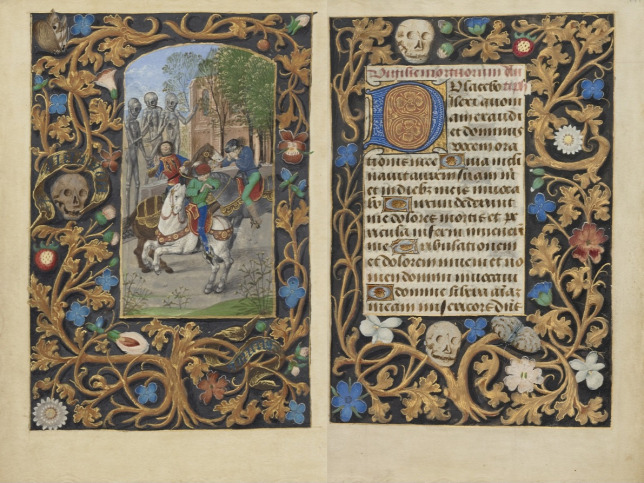 Vigilie mortuorum
Placebo
Dilexi quoniam
exaudi
et dominus
vocem ora
tionis mee Quia incli
nauit aurem suam michi
et in dieb meis inuoca
bo Circumdederunt
me dolores mortis et pe
ricula inferni inuenerunt
me Tribulationem
et dolorem inueni et no
men domini inuocaui
O domine libera
meam misericors dns